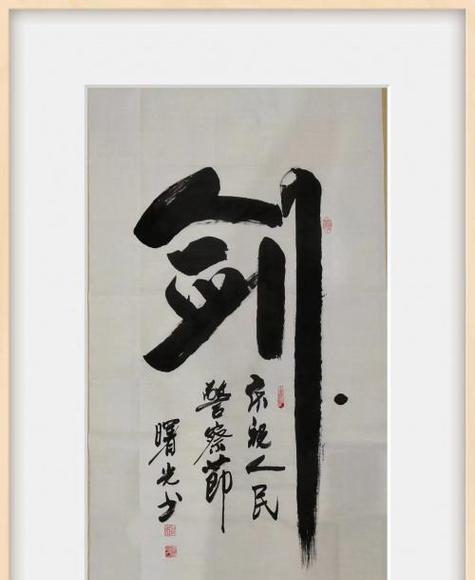 剑
庆祝人民
警察節
曙光书